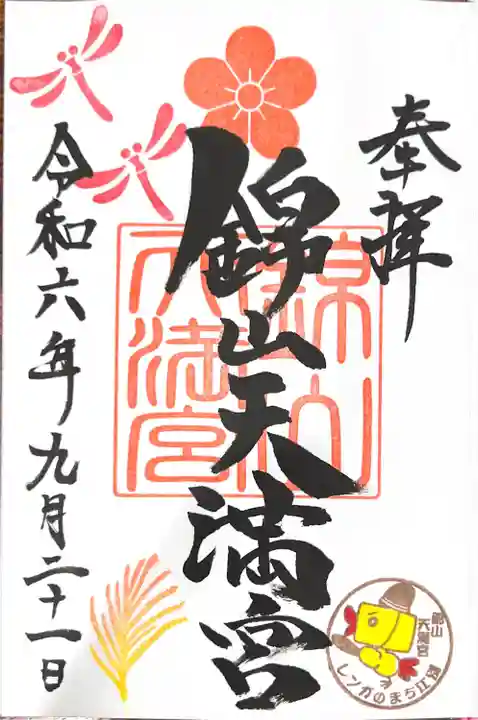 奉拝
錦山天満宮
錦山
天満宮
令和六年九月二十一日
錦山
天満宮
レンガのまち江別